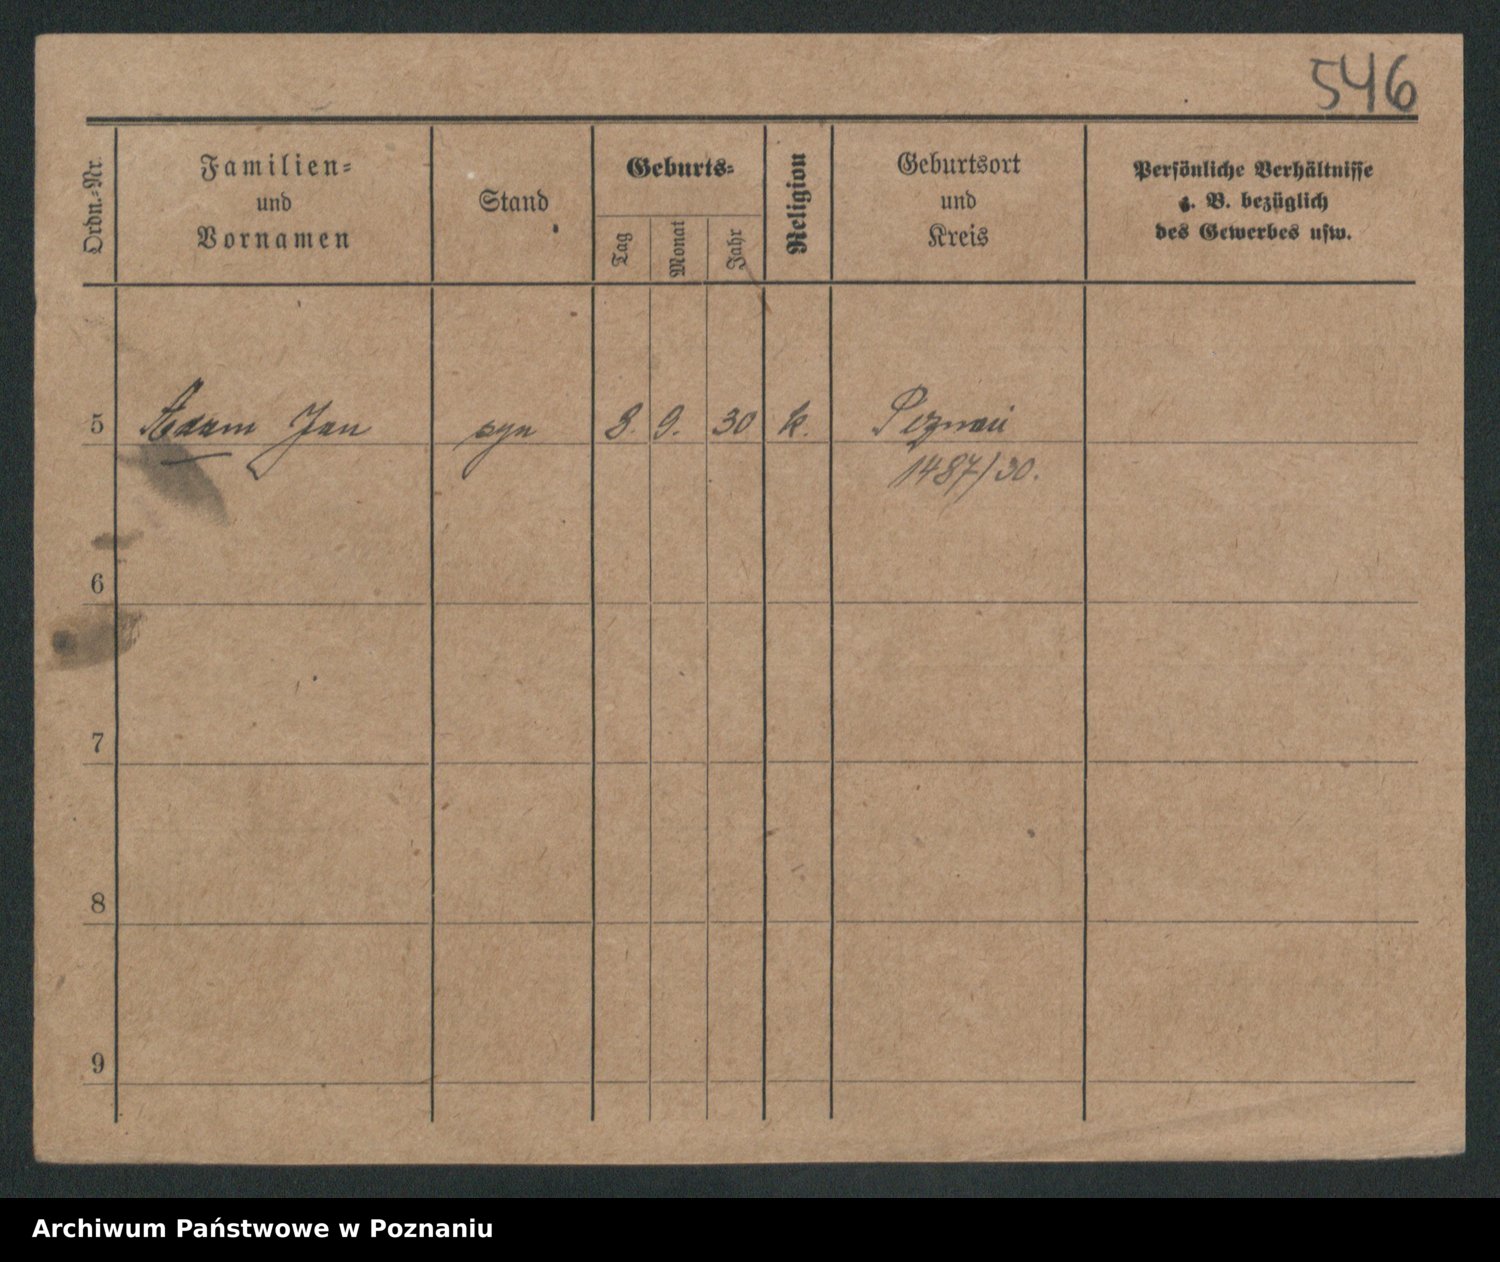 546
Ordn.-Nr.
Familien-
und
Vornamen
Stand
Geburts-
Tag
Monat
Jahr
Religion
Geburtsort
und
Kreis
Persönliche Verhältnisse
z. B. bezüglich
des Gewerbes usw.
5 Adam Jan syn 8. 9. 30 k. Poznań
1487/30.
6
7
8
9
Archiwum Państwowe w Poznaniu